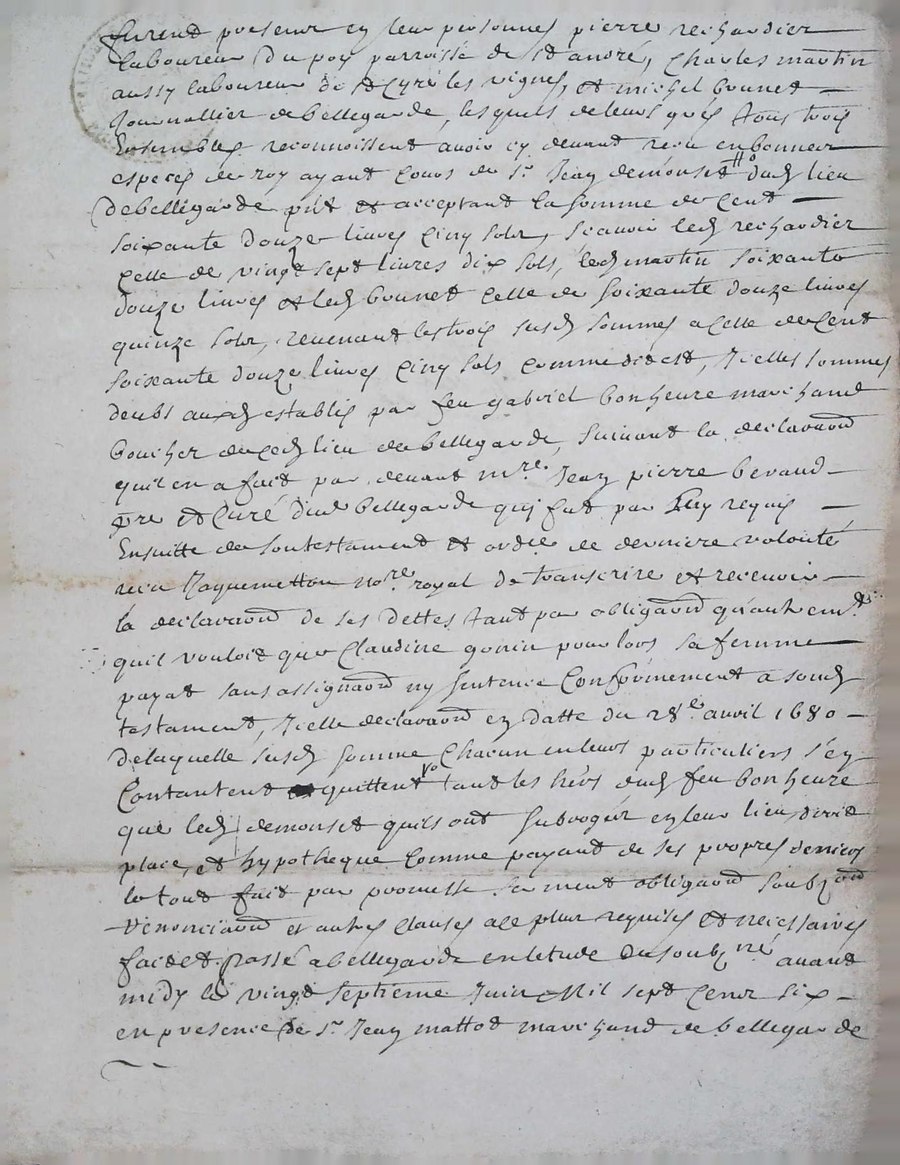 furent presentz en leur personnes pierre rechardier
laboureur du poy parroisse de st andré, Charles martin
aussy laboureur de st Cyre les vignes, et michel brunet
Journallier de bellegarde, lesquels de leurs grés tous trois
Ensembles reconnoissent avoir cy devant receu en bonnes
especes de roy ayant cours de sr Jean demonset dud lieu
de bellegarde pnt et acceptant la somme de cent
soixante douze livres cinq solz, scavoir led rechardier
celle de vingt sept livres dix sols, led martin soixante
douze livres et led brunet celle de soixante douze livres
quinze solz, revenant les trois susd sommes a celle de cent
soixante douze livres cinq sols comme dit est, Icelles sommes
deubs ausd establis par feu gabriel bonheure marchand
boucher de ced lieu de bellegarde, suivant la declaraon
quil en a fait par devant mre Jean pierre beraud
pre et Curé dud bellegarde qui fut par luy requis
Ensuitte de son testament et ordre de derniere volonté
receu Raquemetton nore royal de transcrire et recevoir
la declaraon de ses dettes tant par obligaon qu'autremt
quil vouloit que Claudine gonin pour lors sa femme
payat sans assignaon ny sentence Conformement a soud
testament, Icelle declaraon en datte du 28e avril 1680
de laquelle susd somme Chacun en leurs particuliers s'en
Contantent quittent tant les hers dud feu bonheure
que led demonset quils ont subrogér en leur lieu, droit
place, et hypotheque comme payant de ses propres deniers
le tout fait par promesse serment obligaon soubzon
renonciaon et autres clauses a ce plus requises et necessaires
fait et passé a bellegarde en letude du soubz né avant
midy le vingt septieme Juin Mil sept Cent six
en presence de sr Jean mattot marchand de bellegarde